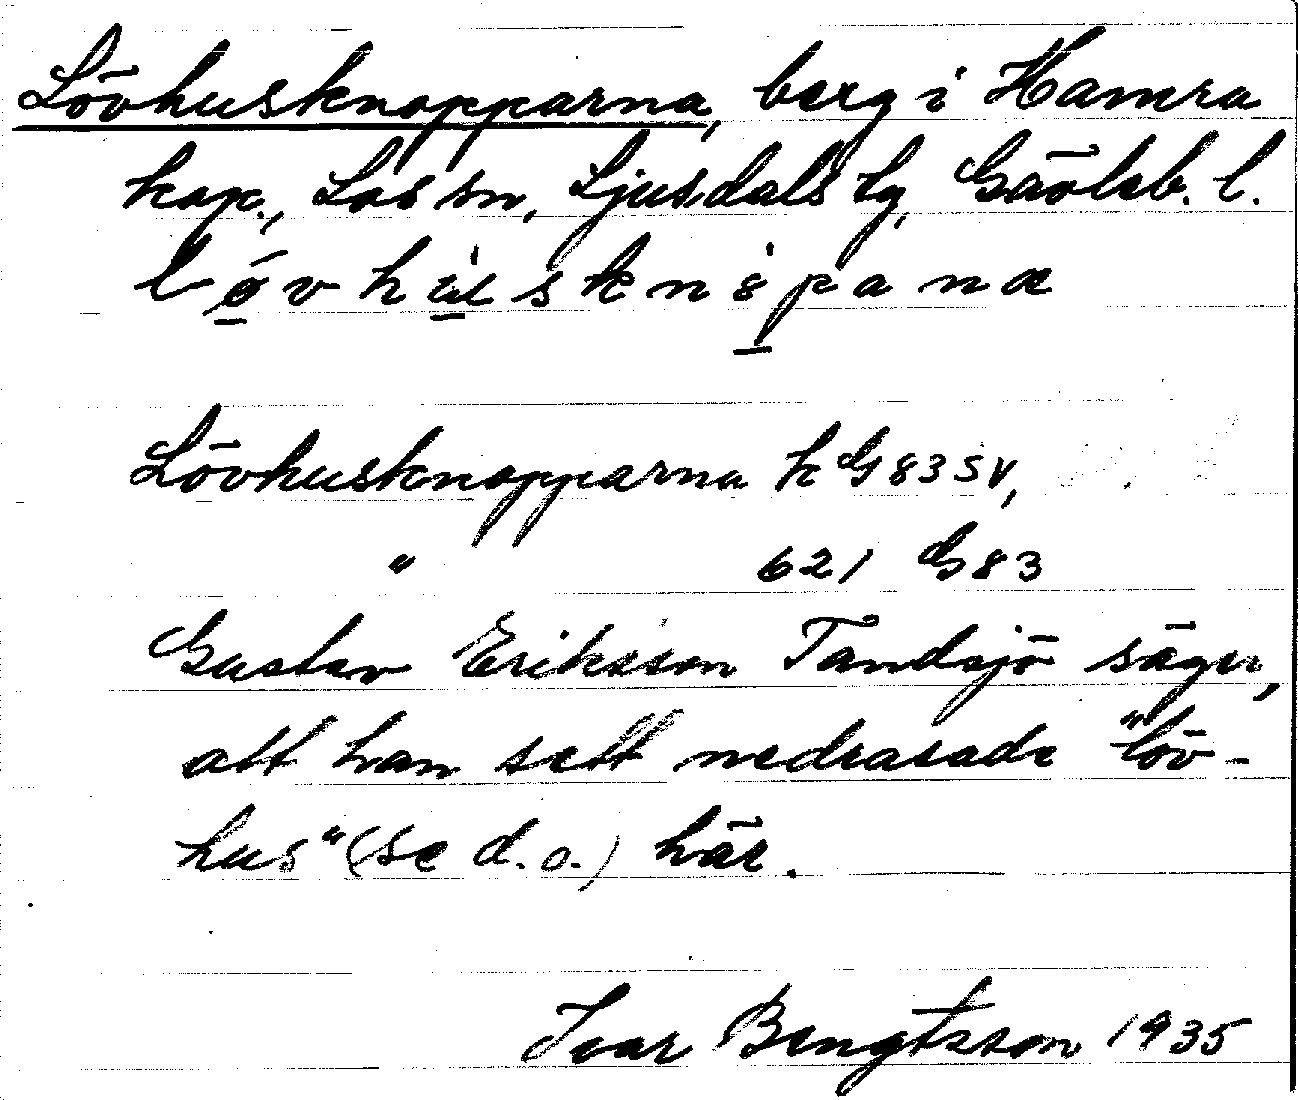 Lövhusknopparna, berg i Hamra
kap., Los sn, Ljusdals tg, Gävleb. l.
løvhuskn pana
Lövhusknopparna k G 83 SV,
" 621 G 83
Gustav Eriksson Tandsjö säger,
att han sett nedrasade "löv-
hus" (se d.o.) här.
Ivar Bengtsson 1935